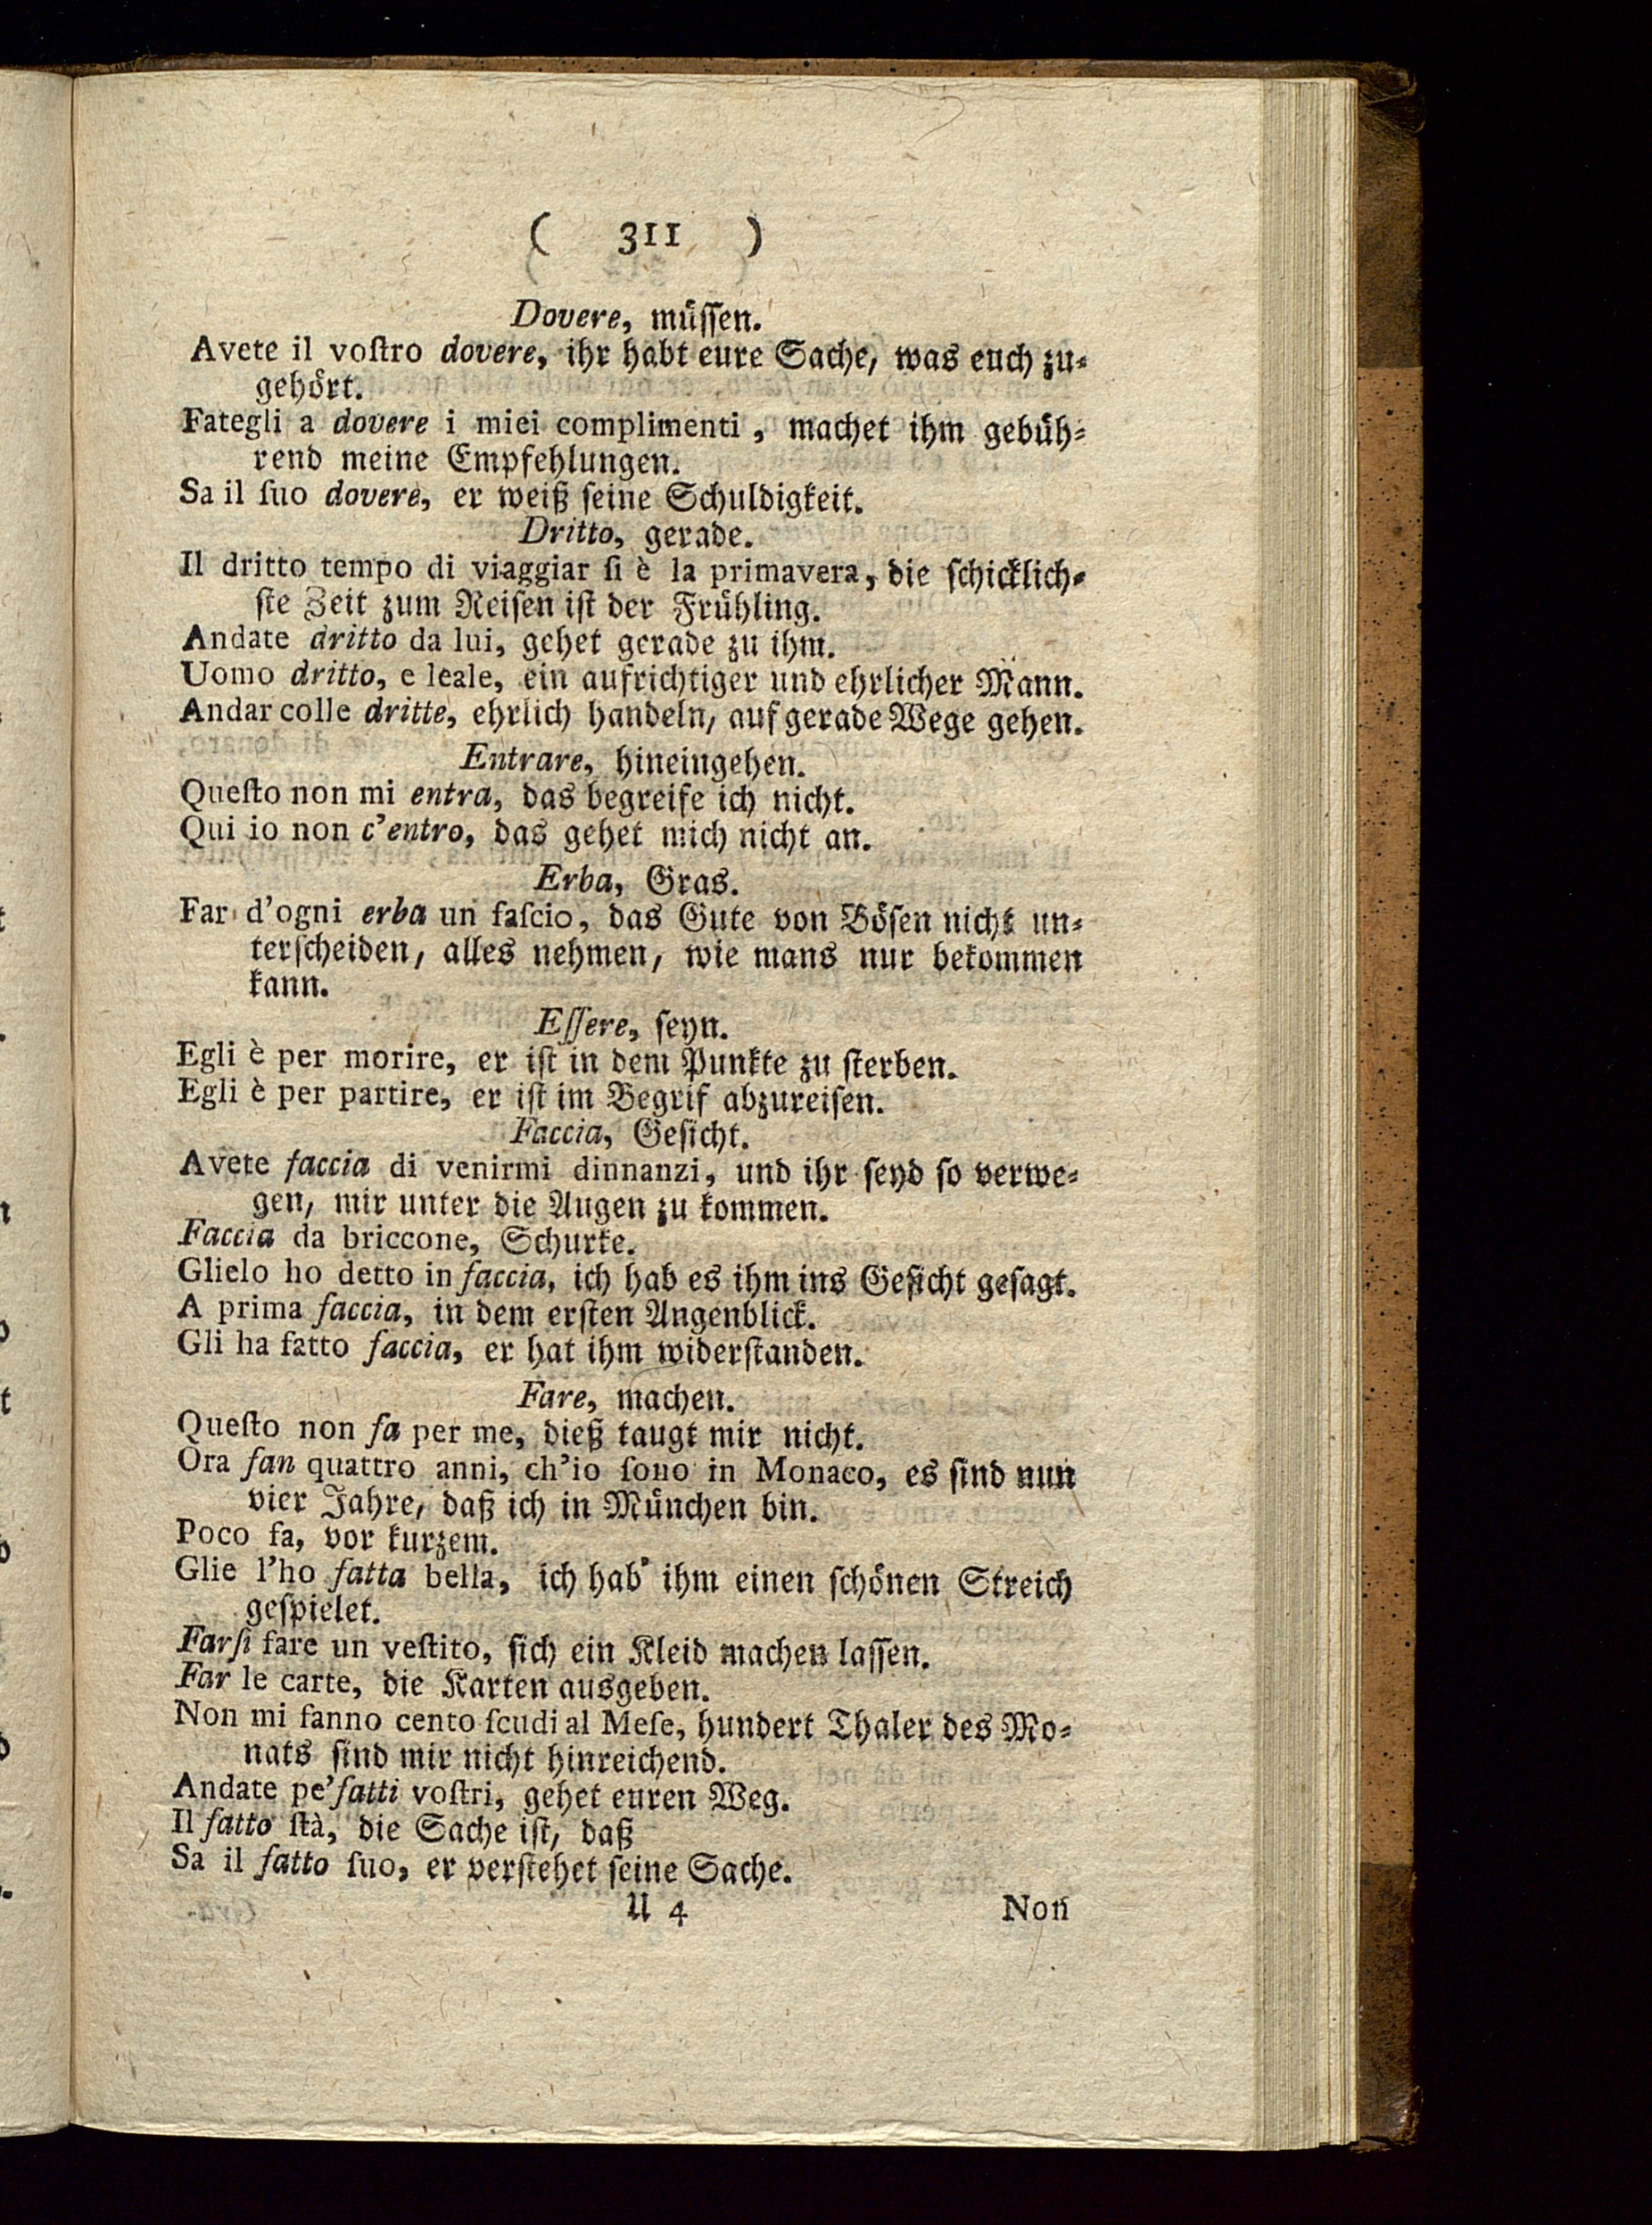 ( 311 )
Dovere, müssen.
Avete il voſtro dovere, ihr habt eure Sache, was euch zu⸗
gehört.
Fategli a dovere i miei complimenti, machet ihm gebüh⸗
rend meine Empfehlungen.
Sa il ſuo dovere, er weiß ſeine Schuldigkeit.
Dritto, gerade.
Il dritto tempo di viaggiar ſi è la primavera, die ſchicklich⸗
ſte Zeit zum Reiſen iſt der Frühling.
Andate dritto da lui, gehet gerade zu ihm.
Uomo dritto, e leale, ein aufrichtiger und ehrlicher Mann.
Andar colle dritte, ehrlich handeln, auf gerade Wege gehen.
Entrare, hineingehen.
Queſto non mi entra, das begreife ich nicht.
Qui io non c'entro, das gehet mich nicht an.
Erba, Gras.
Far d'ogni erba un faſcio, das Gute von Böſen nicht un⸗
terſcheiden, alles nehmen, wie mans nur bekommen
kann.
Eſſere, ſeyn.
Egli è per morire, er iſt in dem Punkte zu ſterben.
Egli è per partire, er iſt im Begrif abzureiſen.
Faccia, Geſicht.
Avete faccia di venirmi dinnanzi, und ihr ſeyd ſo verwe⸗
gen, mir unter die Augen zu kommen.
Faccia da briccone, Schurke.
Glielo ho detto in faccia, ich hab es ihm ins Geſicht geſagt.
A prima faccia, in dem erſten Angenblick.
Gli ha fatto faccia, er hat ihm widerſtanden.
Fare, machen.
Queſto non fa per me, dieß taugt mir nicht.
Ora fan quattro anni, ch'io ſono in Monaco, es ſind nun
vier Jahre, daß ich in München bin.
Poco fa, vor kurzem.
Glie l'ho fatta bella, ich hab' ihm einen ſchönen Streich
geſpielet.
Farſi fare un veſtito, ſich ein Kleid machen laſſen.
Far le carte, die Karten ausgeben.
Non mi fanno cento ſcudi al Meſe, hundert Thaler des Mo⸗
nats ſind mir nicht hinreichend.
Andate pe' fatti voſtri, gehet euren Weg.
Il fatto ſtà, die Sache iſt, daß
Sa il fatto ſuo, er verſtehet ſeine Sache.
U 4 Non